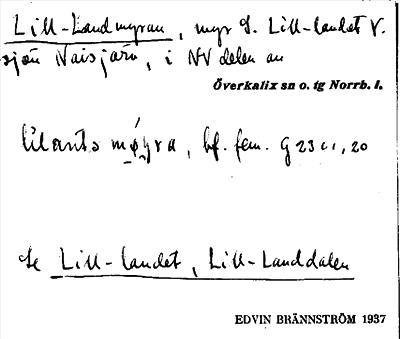 Lill-Landmyran, myr S. Lill-landet V.
sjön Naisjärv, i NV delen av
Överkalix sn o. tg Norrb. l.
lìlants mǿyra, bf. fem. G 23 c1, 20
Se Lill-landet, Lill-Landdalen
EDVIN BRÄNNSTRÖM 1937